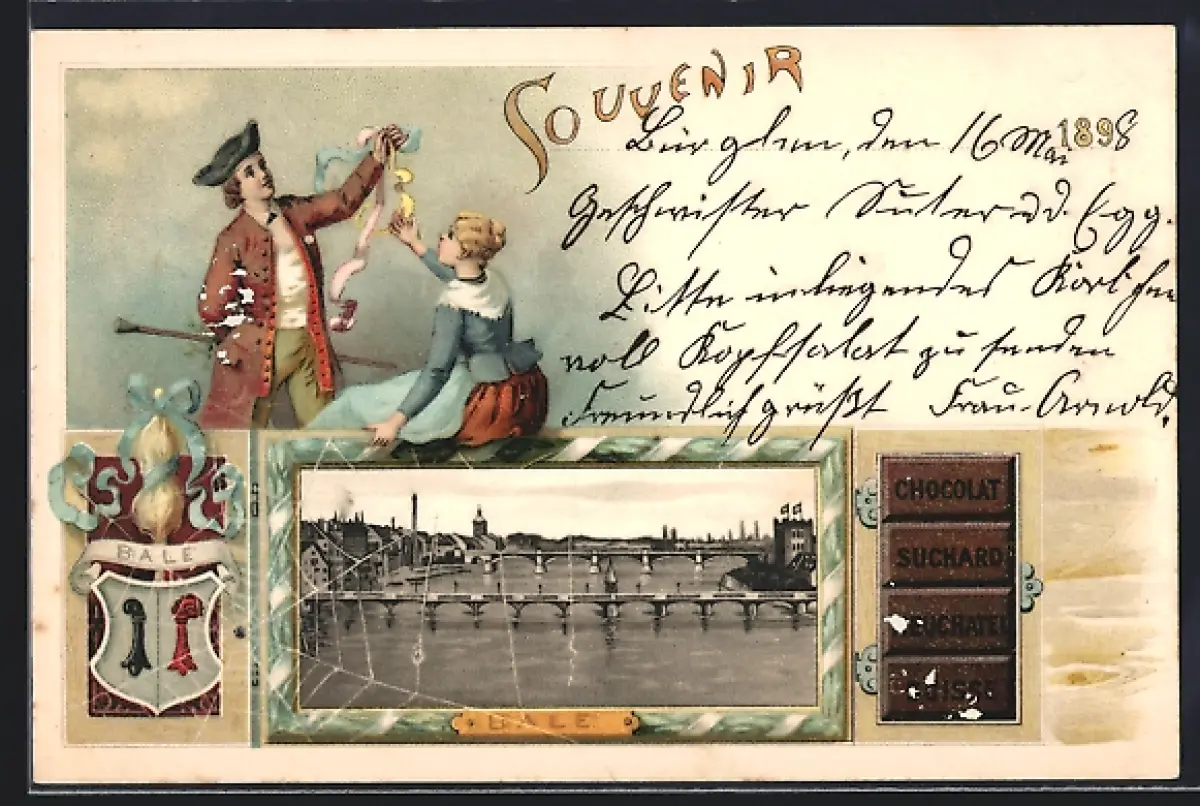 SOUVENIR
Bürglen, den 16 Mai 1898
Geschwister Suter
Bitte inliegendes Körbchen
voll Kopfsalat zu senden
Freundlich grüßt Frau Arnold.
BALE
BALE
CHOCOLAT
SUCHARD
NEUCHATEL
SUISSE